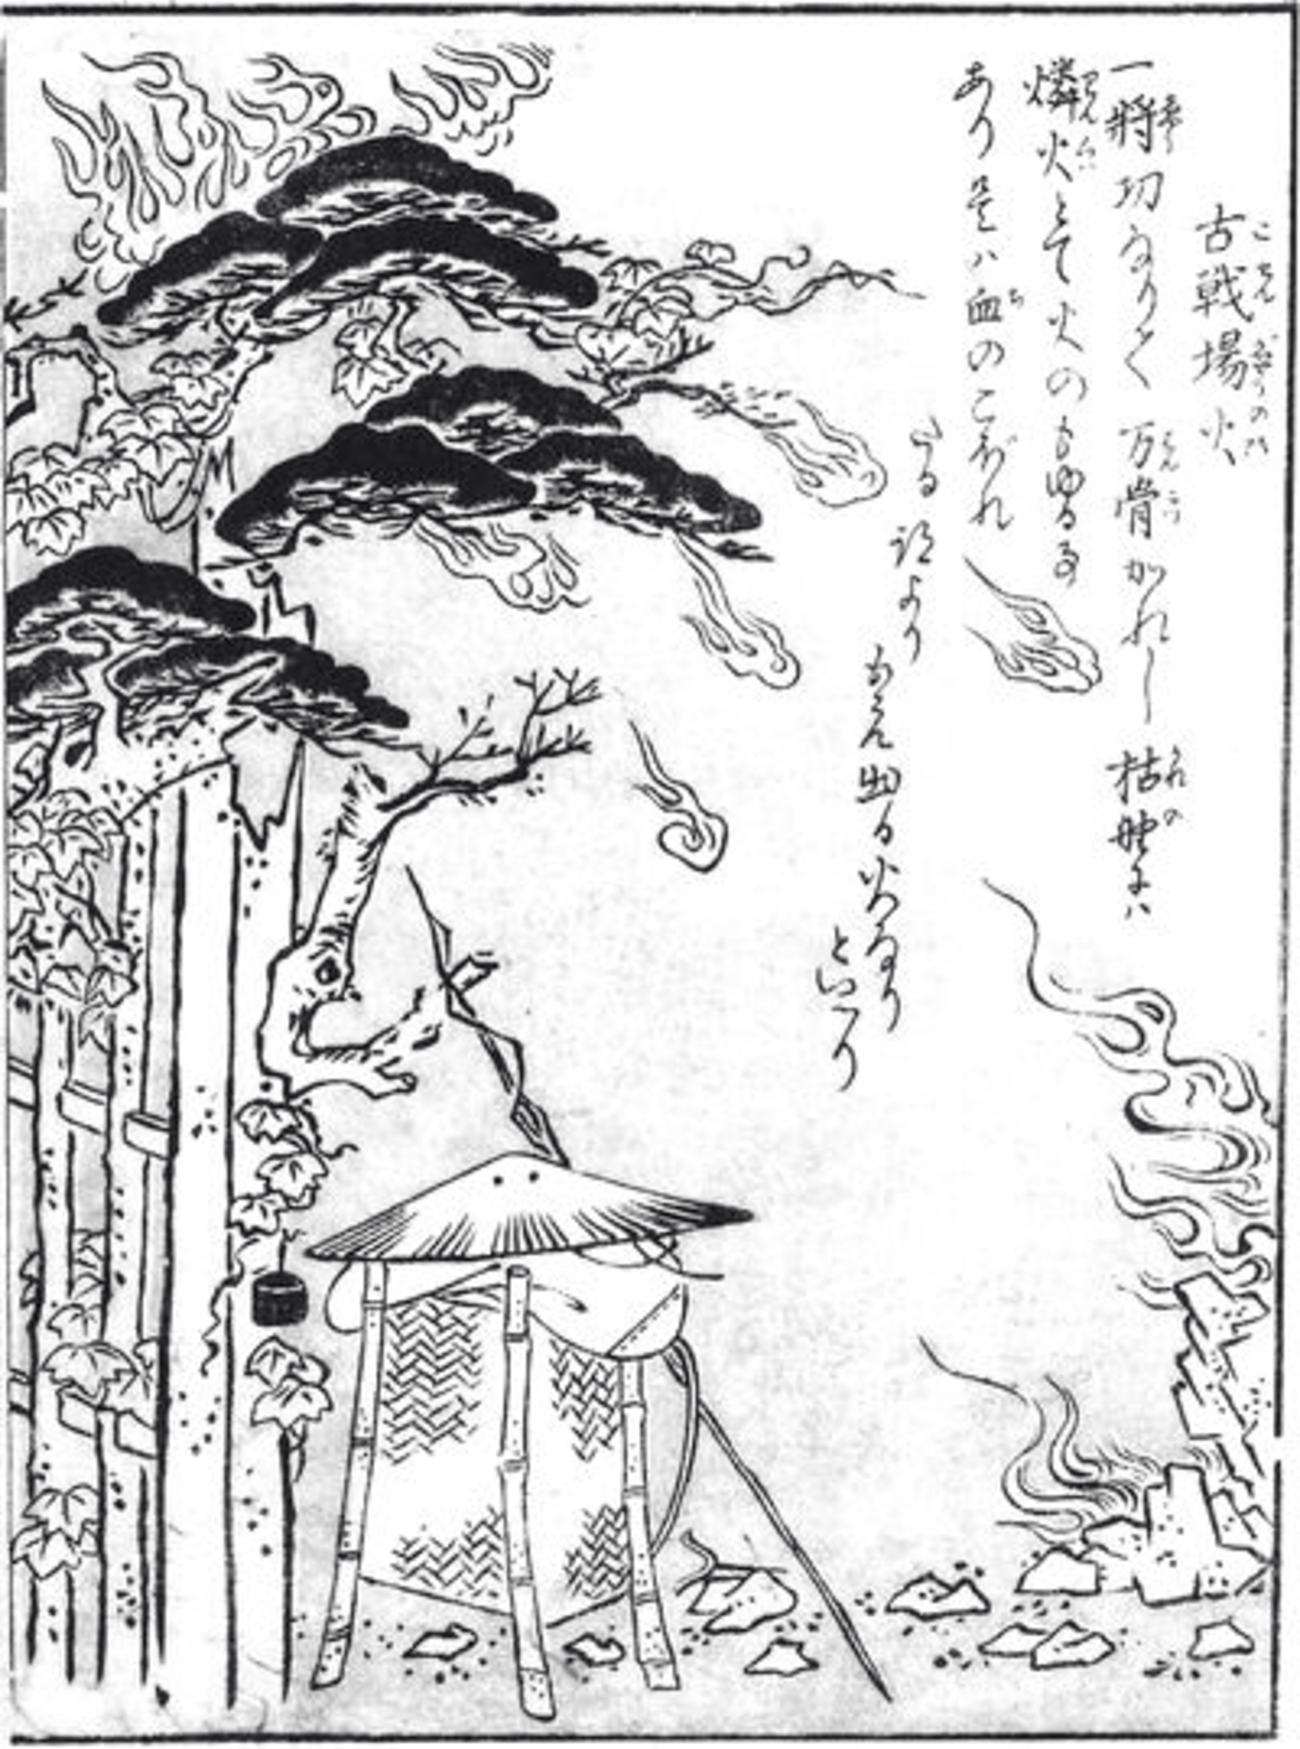 古戦場火
一将功なりて万骨かれし枯野には
燐火とて火のもゆる事
あり是は血のこぼれ
たる跡より
もえ出る火なり
といへり